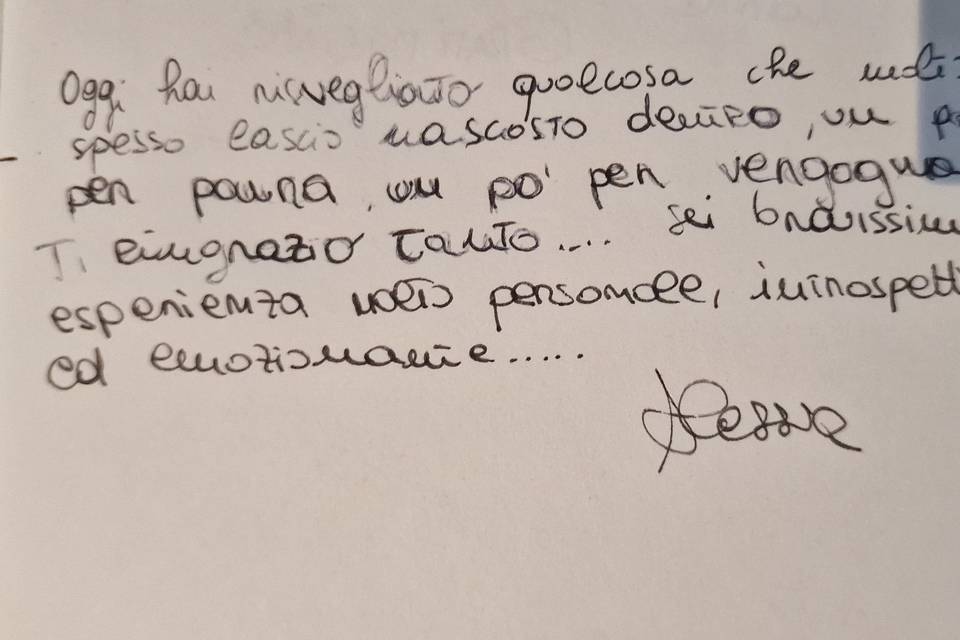 Oggi hai risvegliato qualcosa che molt
spesso lascio nascosto dentro, un p
per paura, un po' per vergogna
Ti ringrazio tanto.... sei bravissim
esperienza molto personale, introspett
ed emozionante.....